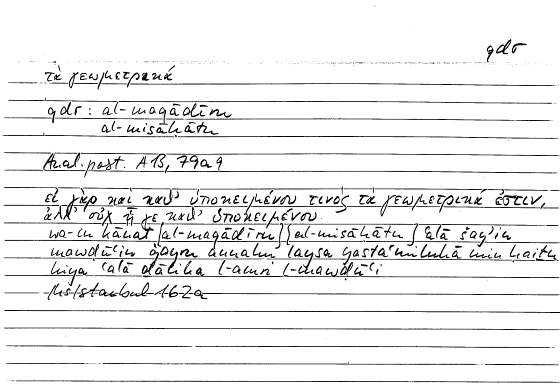 qdr
τὰ γεωμετρικά
qdr : al-maqādīru
al-misāḥātu
Anal. post. A 13, 79a9
εἰ γὰρ καὶ καθ' ὑποκειμένου τινός τὰ γεωμετρικά ἐστιν,
ἀλλ' οὐχ ᾗ γε καθ' ὑποκειμένου.
wa-in kānat [al-maqādīru] [al-misāḥātu] ʿalā šayʾin
mawḍūʿin ġayra annahū laysa yastaʿmiluhā min ḥaiṯu
hiya ʿalā ḏālika l-amri l-mawḍūʿi
Ms Istanbul 162a